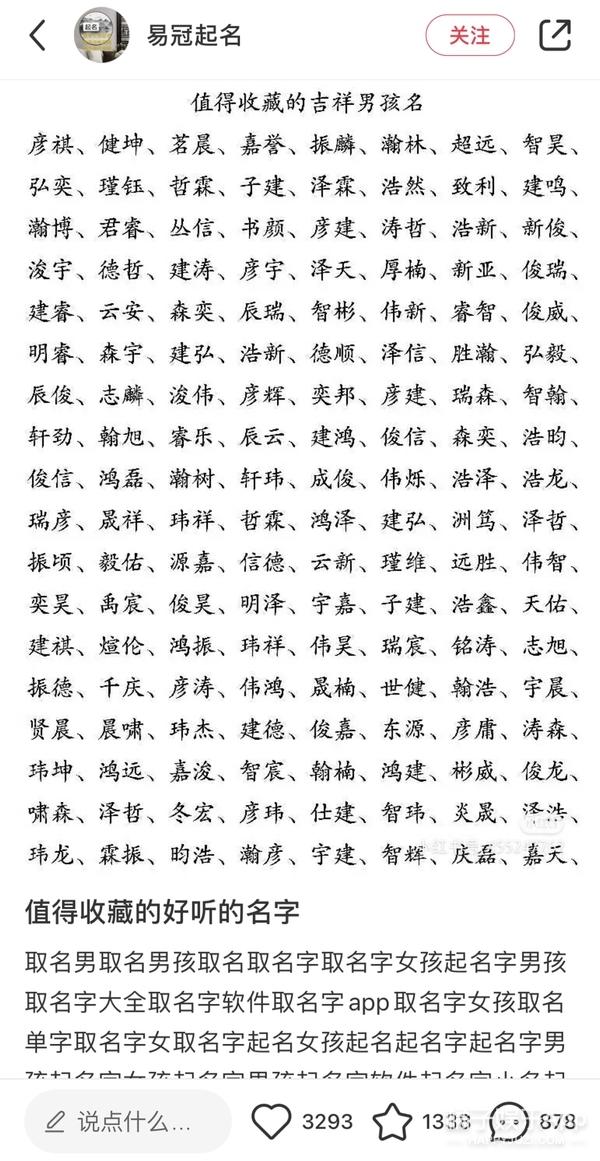 起名
易冠起名
关注
值得收藏的吉祥男孩名
彦祺、健坤、茗晨、嘉誉、振麟、瀚林、超远、智昊、
弘奕、瑾钰、哲霖、子建、泽霖、浩然、致利、建鸣、
瀚博、君睿、丛信、书颜、彦建、涛哲、浩新、新俊、
浚宇、德哲、建涛、彦宇、泽天、厚楠、新亚、俊瑞、
建睿、云安、森奕、辰瑞、智彬、伟新、睿智、俊威、
明睿、森宇、建弘、浩新、德顺、泽信、胜瀚、弘毅、
辰俊、志麟、浚伟、彦辉、奕邦、彦建、瑞森、智翰、
轩劲、翰旭、睿乐、辰云、建鸿、俊信、森奕、浩昀、
俊信、鸿磊、瀚树、轩玮、成俊、伟烁、浩泽、浩龙、
瑞彦、晟祥、玮祥、哲霖、鸿泽、建弘、洲笃、泽哲、
振顷、毅佑、源嘉、信德、云新、瑾维、远胜、伟智、
奕昊、禹宸、俊昊、明泽、宇嘉、子建、浩鑫、天佑、
建祺、煊伦、鸿振、玮祥、伟昊、瑞宸、铭涛、志旭、
振德、千庆、彦涛、伟鸿、晟楠、世健、翰浩、宇晨、
贤晨、晨啸、玮杰、建德、俊嘉、东源、彦庸、涛森、
玮坤、鸿远、嘉浚、智宸、翰楠、鸿建、彬威、俊龙、
啸森、泽哲、冬宏、彦玮、仕建、智玮、炎晟、泽浩、
玮龙、霖振、昀浩、瀚彦、宇建、智辉、庆磊、嘉天、
值得收藏的好听的名字
取名男取名男孩取名取名字取名字女孩起名字男孩
取名字大全取名字软件取名字app取名字女孩取名
单字取名字女取名字起名女孩起名起名字起名字男
孩起名字女孩起名字男孩起名字软件起名字小名起
说点什么...
3293
1338
878